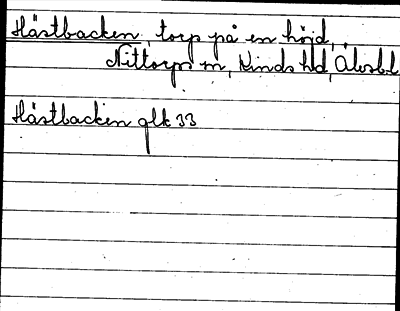 Hästbacken, torp på en höjd,
Nittorps sn, Kinds hd, Älvsbl
Hästbacken glk 33